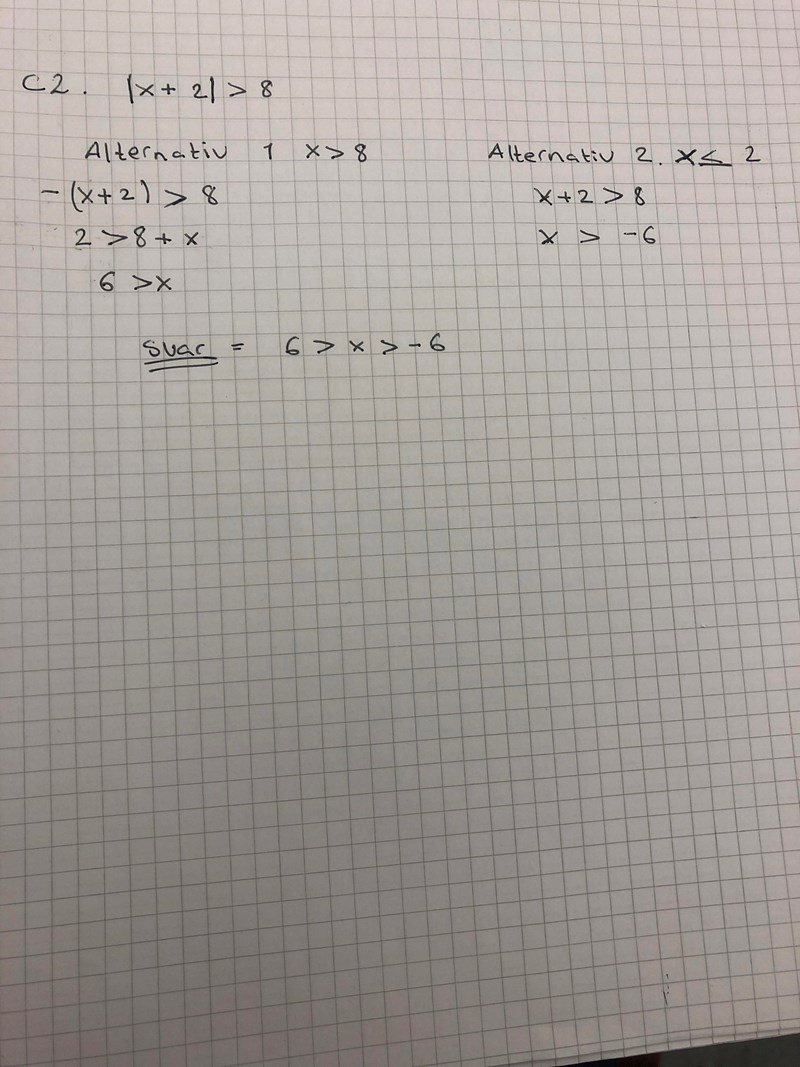 C2. |x+2|>8
Alternativ 1 x>8
-(x+2) > 8
2>8+x
6 >x
Alternativ 2. x≤ 2
x+2>8
x > -6
Svar = 6 > x > -6